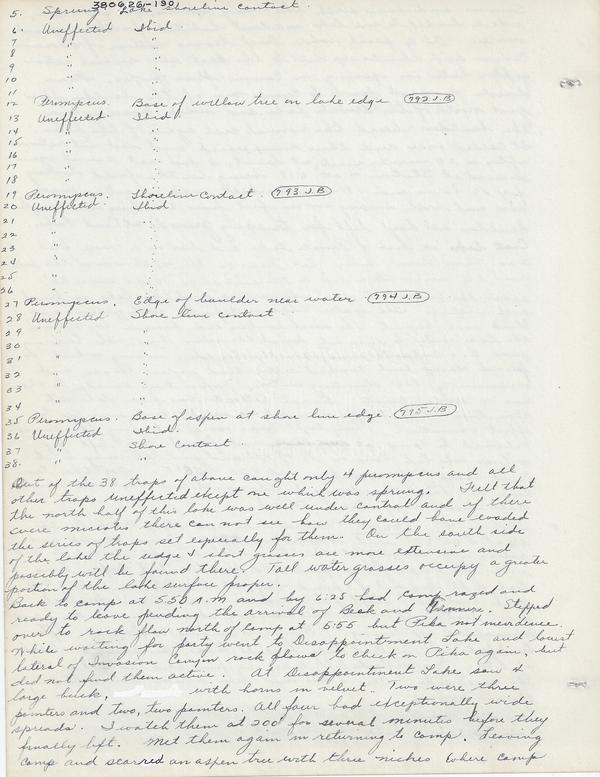 380626-190
5. Sprung. Lake Shoreline contact.
6. Uneffected Ibid.
7 " "
8 " "
9 " "
10 " "
11 " "
12 Peromyscus. Base of willow tree on lake edge (792 J.B)
13 Uneffected. Ibid.
14 " "
15 " "
16 " "
17 " "
18 " "
19 Peromyscus. Shoreline Contact. (793 J.B)
20 Uneffected. Ibid
21 " "
22 " "
23 " "
24 " "
25 " "
26 " "
27 Peromyscus. Edge of boulder near water. (794 J.B)
28 Uneffected Shore line contact.
29 " "
30 " "
31 " "
32 " "
33 " "
34 " "
35 Peromyscus. Base of aspen at shore line edge. (795 J.B)
36 Uneffected Ibid.
37 " Shore Contact.
38. " "
Out of the 38 traps of above caught only 4 peromyscus and all
other traps uneffected except one which was sprung. I felt that
the north half of this lake was well under control and if there
were microtus there can not see how they could have evaded
the series of traps set especially for them. On the south side
of the lake the sedge & short grasses are more extensive and
possibly will be found there. Tall water grasses occupy a greater
portion of the lake surface proper.
Back to camp at 5:50 A.M and by 6:25 had camp razed and
ready to leave pending the arrival of Beck and. Stepped
over to rock flow north of camp at 6:55 but Pika not in evidence.
While waiting for party went to Disappointment Lake and lowest
lateral of Invasion Canyon rock flows to check on Pika again, but
did not find them active. At Disappointment Lake saw 4
large buck, with horns in velvet. Two were three
pointers and two, two pointers. All four had exceptionally wide
spreads. I watch them at 200' for several minutes before they
finally left. Met them again in returning to camp. Leaving
camp and scarred an aspen tree with three niches where camp